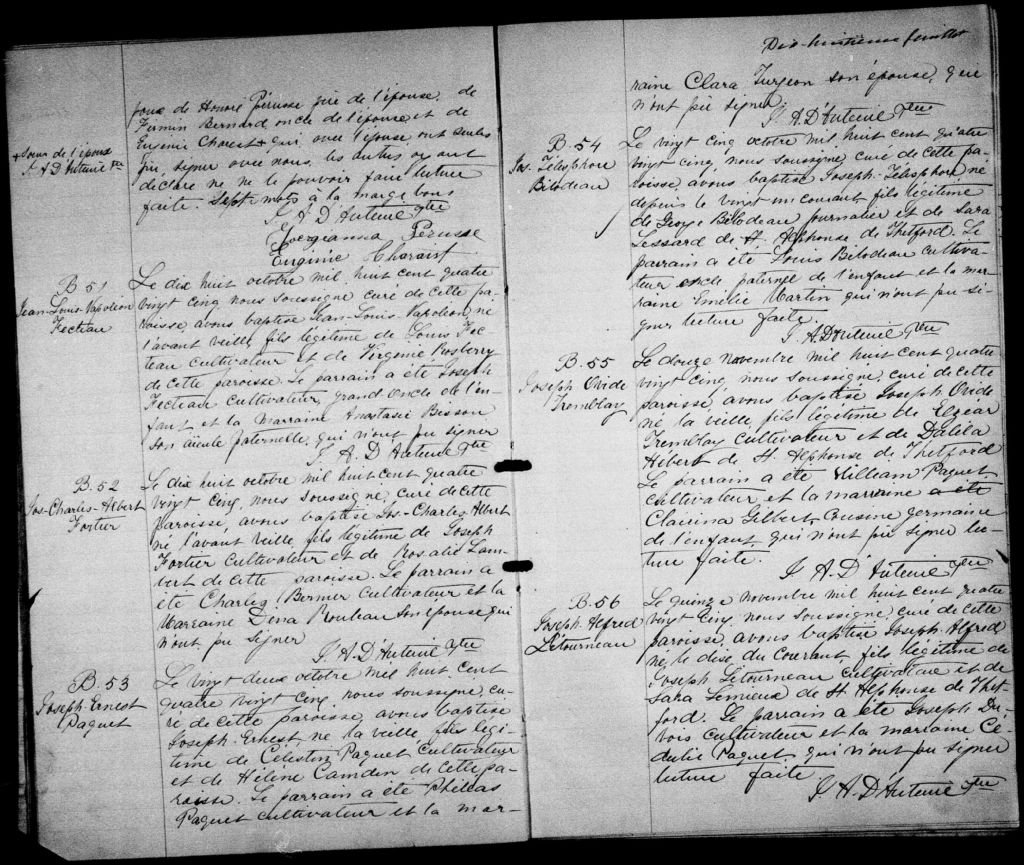 poux de Honoré Pérusse père de l'épouse, de
Firmin Bernard oncle de l'épouse et de
Eugénie Charest + qui avec l'épouse ont seules
pu signer avec nous, les autres ayant
déclaré ne le pouvoir faire lecture
faite. Sept mots à la marge bons
J. A. D'Auteuil Ptre
Georgianna Pérusse
Eugénie Charest
+ Soeur de l'époux
J. A D'Auteuil Ptre
B. 51
Jean-Louis Napoléon
Fecteau
Le dix huit octobre mil huit cent quatre
vingt cinq nous soussigné curé de cette pa-
roisse, avons baptisé Jean-Louis Napoléon, né
l'avant veille, fils légitime de Louis Fec-
teau cultivateur et de Virginie Rosberry
de cette paroisse. Le parrain a été Joseph
Fecteau cultivateur, grand oncle de l'en-
fant, et la marraine Anastasie Besson
son aieule paternelle, qui n'ont pu signer
J. A. D'Auteuil Ptre
B. 52
Jos-Charles-Albert
Fortier
Le dix huit octobre mil huit cent quatre
vingt cinq, nous soussigné, curé de cette
paroisse, avons baptisé Jos-Charles Albert
né l'avant veille fils légitime de Joseph
Fortier Cultivateur et de Rosalie Lam-
bert de cette paroisse. Le parrain a
été Charles Bernier Cultivateur et la
Marraine Lina Rouleau son épouse qui
n'ont pu signer
J. A. D'Auteuil Ptre
B. 53
Joseph Ernest
Paquet
Le vingt deux octobre mil huit cent
quatre vingt cinq, nous soussigné, cu-
ré de cette paroisse, avons baptisé
Joseph-Ernest, né la veille, fils légi-
time de Célestin Paquet Cultivateur
et de Hélène Camden de cette pa-
roisse. Le parrain a été Philéas
Paquet cultivateur et la mar-
Dix-huitième feuillet
raine Clara Turgeon son épouse, qui
n'ont pu signer.
J. A. D'Auteuil Ptre
B. 54
Jos. Télesphore
Bilodeau
Le vingt cinq octobre mil huit cent quatre
vingt cinq, nous soussigné, curé de cette pa-
roisse, avons baptisé Joseph-Télesphore né
depuis le vingt un courant fils légitime
de George Bilodeau journalier et de Sara
Lessard de St. Alphonse de Thetford. Le
parrain a été Louis Bilodeau cultiva-
teur oncle paternel de l'enfant et la mar-
raine Emélie Martin qui n'ont pu si-
gner lecture faite.
J. A D'Auteuil Ptre
B. 55
Joseph Ovide
Tremblay
Le douze Novembre mil huit cent quatre
vingt cinq, nous soussigné, curé de cette
paroisse, avons baptisé Joseph Ovide
né la veille, fils légitime de Elzéar
Tremblay Cultivateur et de Dalila
Hébert de St. Alphonse de Thetford
Le parrain a été William Paquet
cultivateur et la marraine a été
Clarina Gilbert, cousine germaine
de l'enfant, qui n'ont pu signer lec-
ture faite.
J. A. D'Auteuil Ptre
B. 56
Joseph Alfred
Létourneau
Le quinze novembre mil huit cent quatre
vingt cinq, nous soussigné, curé de cette
paroisse, avons baptisé Joseph-Alfred
né, le dix du courant, fils légitime de
Joseph Létourneau cultivateur et de
Sara Lemieux de St. Alphonse de Thet-
ford. Le parrain a été Joseph Du-
bois Cultivateur et la marraine Cé-
dulie Paquet, qui n'ont pu signer
lecture faite
J. A. D'Auteuil Ptre